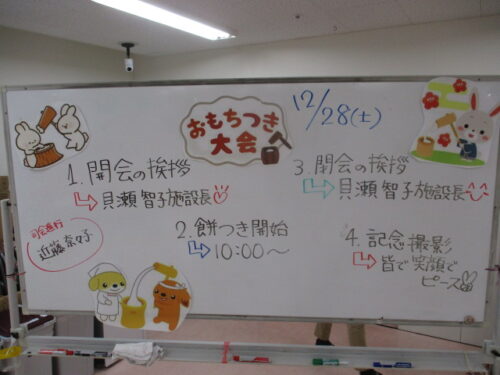 おもちつき
大会
12/28(土)
1. 開会の挨拶
貝瀬 智子施設長
司会進行
近藤 奈々子
2. 餅つき開始
10:00〜
3. 閉会の挨拶
貝瀬 智子施設長
4. 記念撮影
皆で笑顔で
ピース